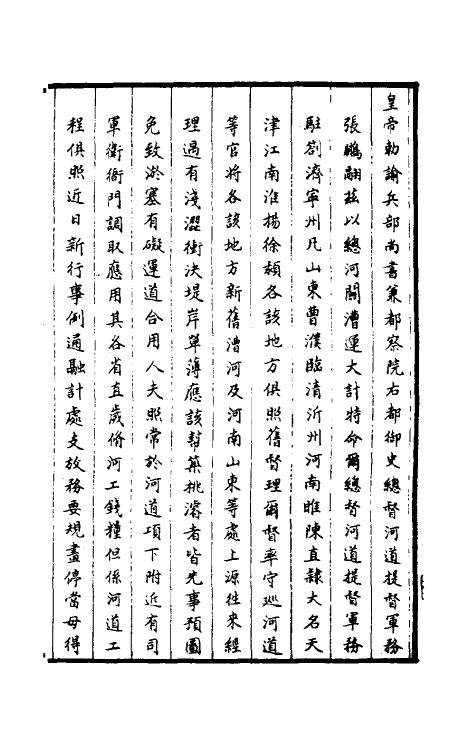 皇帝勅諭兵部尚書兼都察院右都御史總督河道提督軍務
張鵬翮茲以總河關漕運大計特命爾總督河道提督軍務
駐劄濟寧州凡山東曹濮臨清沂州河南睢陳直隸大名天
津江南淮揚徐潁各該地方俱照舊督理爾督率守巡河道
等官将各該地方新舊漕河及河南山東等處上源徃來經
理遇有淺澀衝決堤岸單薄應該幫築挑濬者皆先事預圖
免致淤塞有礙運道合用人夫照常於河道項下附近有司
軍衛衙門調取應用其各省直歲脩河工錢糧但係河道工
程俱照近日新行事例通融計處支放務要規畫停當毋得